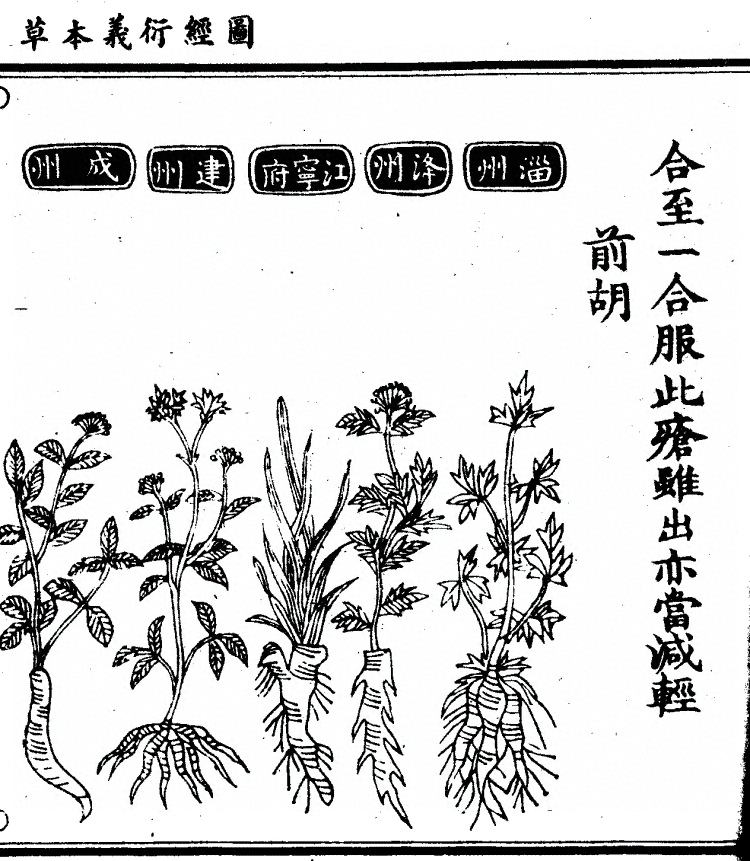 圖經衍義本草
合至一合服此瘡雖出亦當減輕
前胡
淄州
絳州
江寧府
建州
成州